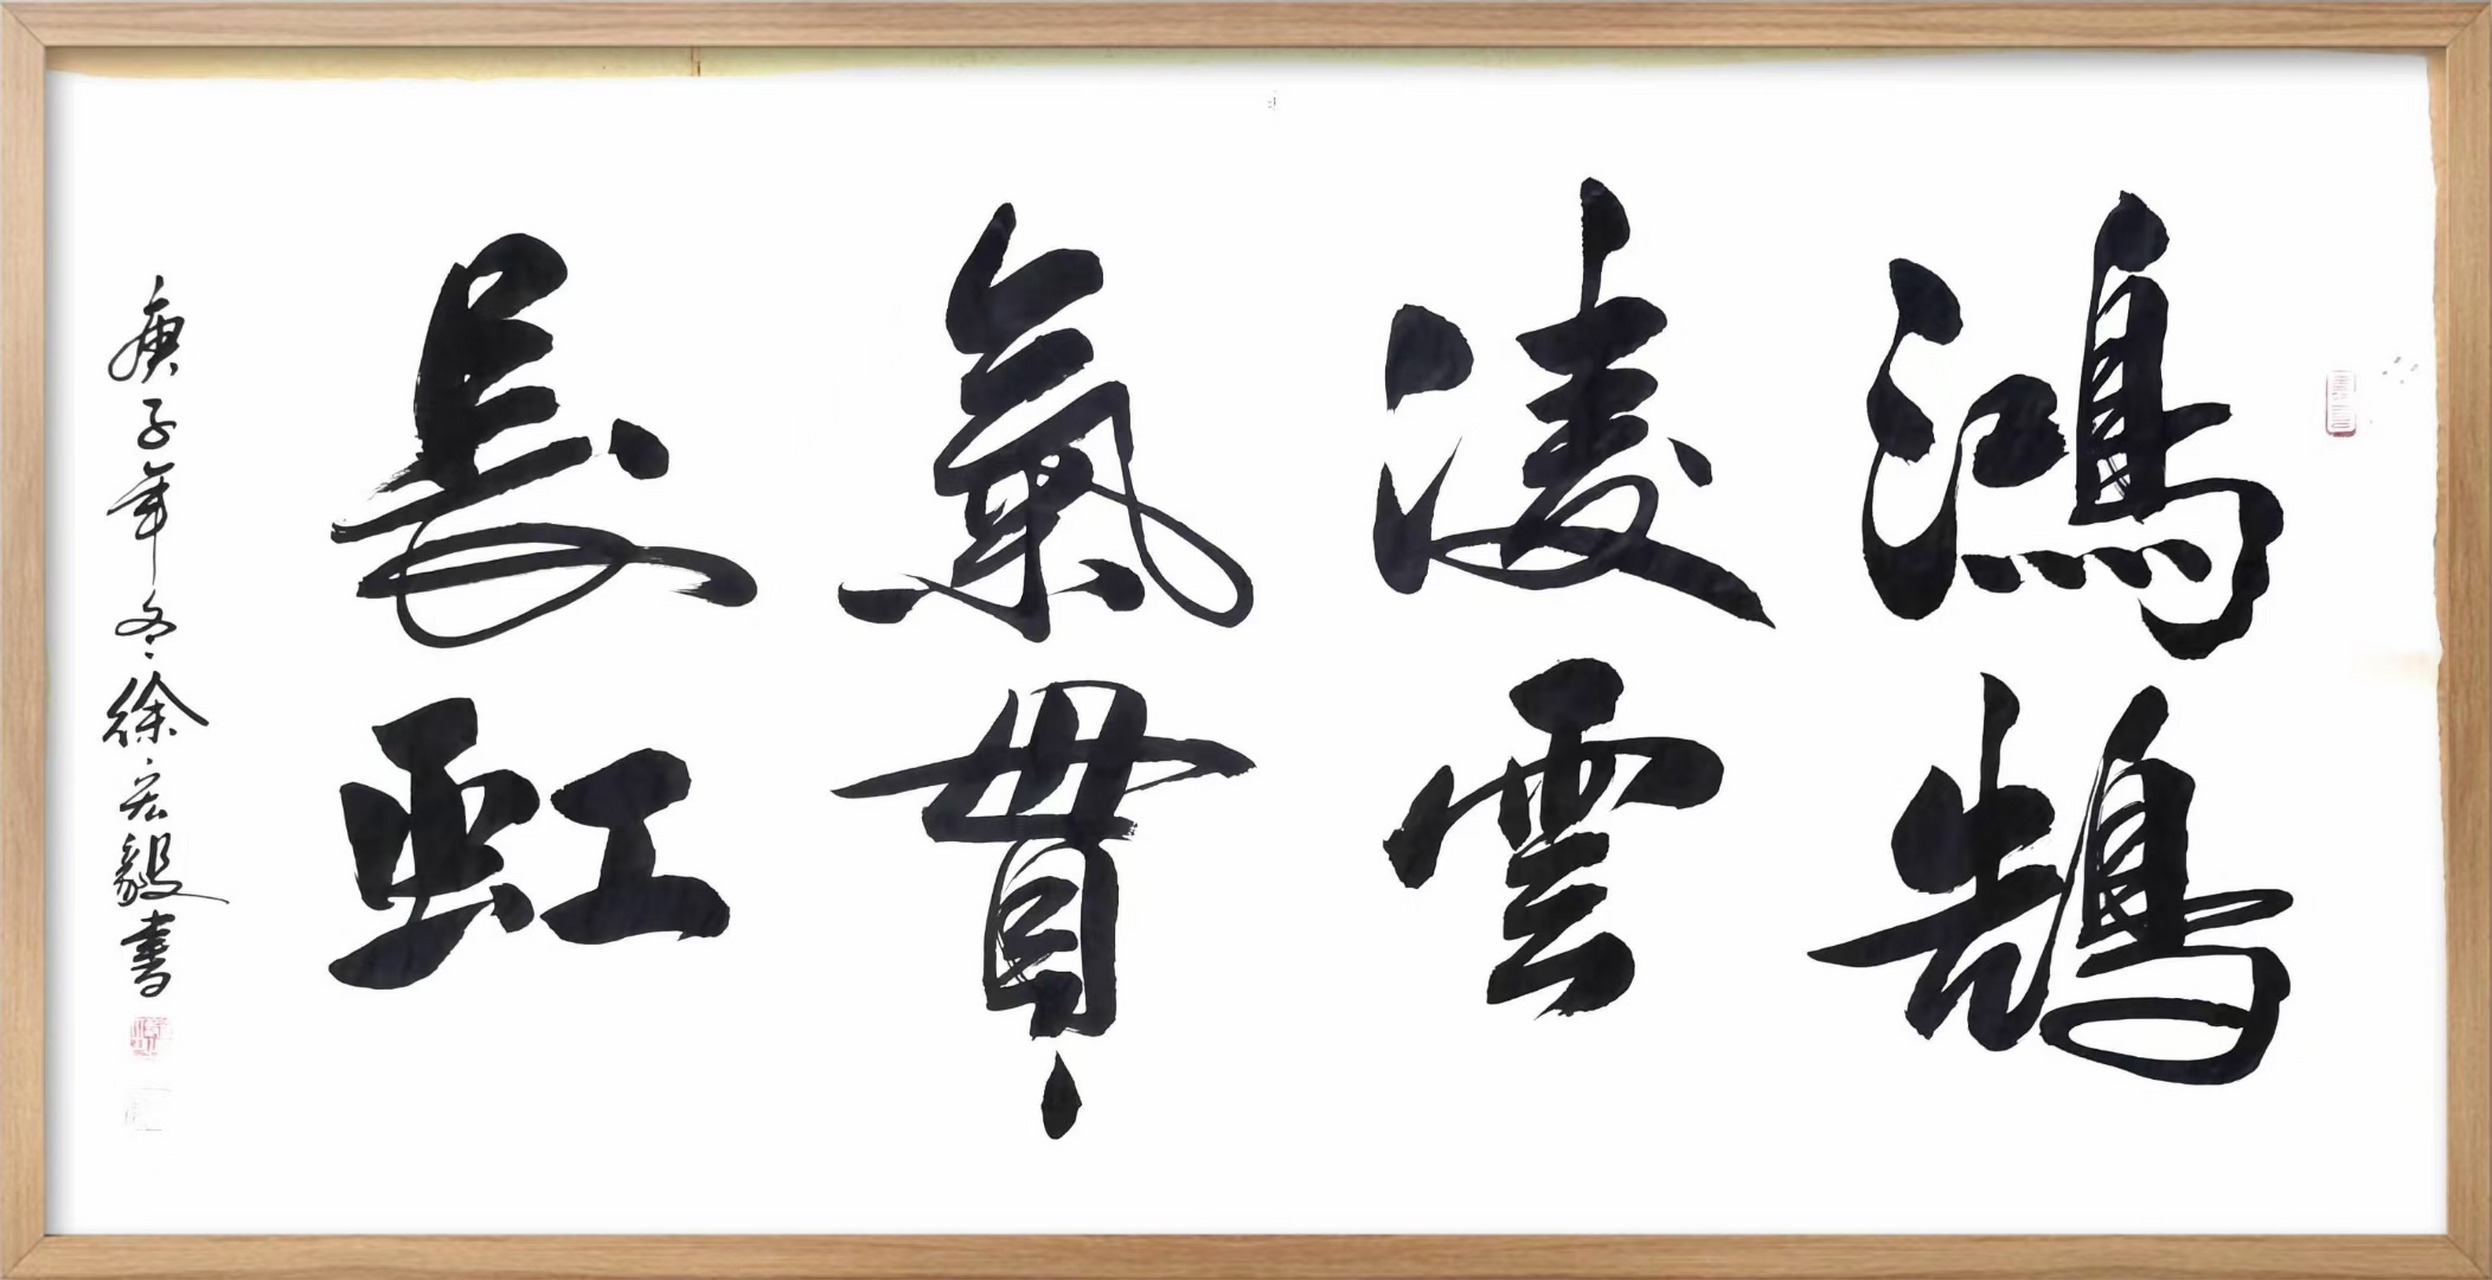 鴻鹄
凌雲
氣貫
長虹
庚子年冬徐宏毅書